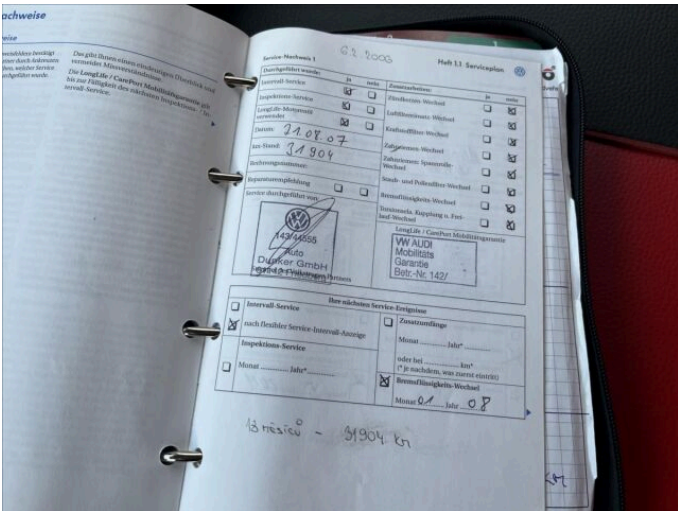 achweise
eise
Das gibt Ihnen einen eindeutigen Überblick und
vermeidet Missverständnisse.
Die LongLife / CarePort Mobilitätsgarantie gilt
bis zur Fälligkeit des nächsten Inspektions- / In-
tervall-Service.
6.2 2006
Service-Nachweis 1
Heft 1.1 Serviceplan
Durchgeführt wurde:
ja
nein
Intervall-Service
Inspektions-Service
LongLife-Motorenöl
verwendet
Datum: 21.08.07
km-Stand: 31904
Rechnungsnummer:
Reparaturempfehlung
Service durchgeführt von:
143/44555
Auto
Dunker GmbH
Zusatzarbeiten:
ja
nein
Zündkerzen-Wechsel
Luftfiltereinsatz-Wechsel
Kraftstofffilter-Wechsel
Zahnriemen-Wechsel
Zahnriemen: Spannrolle-
Wechsel
Staub- und Pollenfilter-Wechsel
Bremsflüssigkeits-Wechsel
Kupplung u. Frei-
lauf-Wechsel
LongLife / CarePort Mobilitätsgarantie
VW AUDI
Mobilitäts
Garantie
Betr.-Nr. 142/
Ihre nächsten Service-Ereignisse
Intervall-Service
nach flexibler Service-Intervall-Anzeige
Inspektions-Service
Monat Jahr*
Zusatzumfänge
Monat Jahr*
oder bei km*
(* je nachdem, was zuerst eintritt)
Bremsflüssigkeits-Wechsel
Monat 01 Jahr 08
18 měsíců - 31904 km